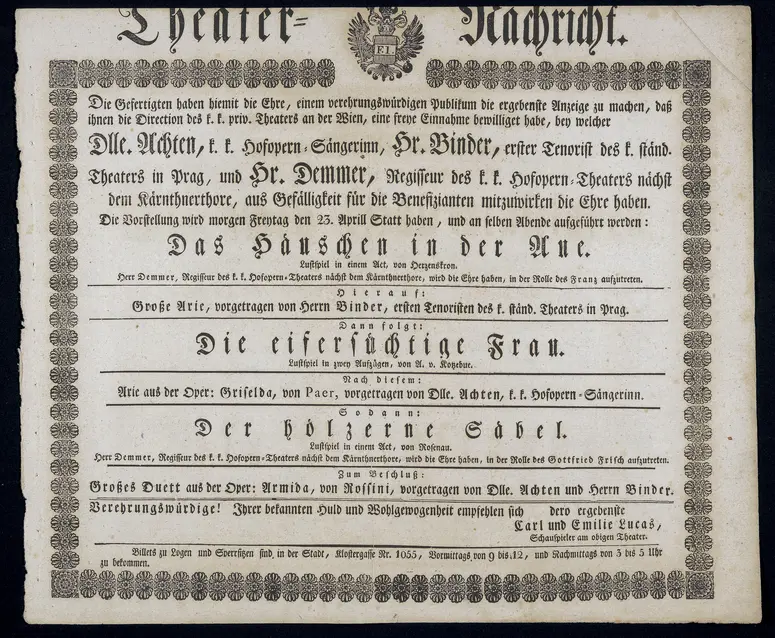 Theater= Nachricht.
F.I.
Die Gefertigten haben hiemit die Ehre, einem verehrungswürdigen Publikum die ergebenste Anzeige zu machen, daß
ihnen die Direction des k. k. priv. Theaters an der Wien, eine freye Einnahme bewilliget habe, bey welcher
Dlle. Achten, k. k. Hofopern=Sängerinn, Hr. Binder, erster Tenorist des k. ständ.
Theaters in Prag, und Hr. Demmer, Regisseur des k. k. Hofopern=Theaters nächst
dem Kärnthnerthore, aus Gefälligkeit für die Benefizianten mitzuwirken die Ehre haben.
Die Vorstellung wird morgen Freytag den 23. Aprill Statt haben, und an selben Abende aufgeführt werden:
Das Häuschen in der Aue.
Lustspiel in einem Act, von Herzenskron.
Herr Demmer, Regisseur des k. k. Hofopern=Theaters nächst dem Kärnthnerthore, wird die Ehre haben, in der Rolle des Franz aufzutreten.
Hierauf:
Große Arie, vorgetragen von Herrn Binder, ersten Tenoristen des k. ständ. Theaters in Prag.
Dann folgt:
Die eifersüchtige Frau.
Lustspiel in zwey Aufzügen, von A. v. Kotzebue.
Nach diesem:
Arie aus der Oper: Griselda, von Paer, vorgetragen von Dlle. Achten, k. k. Hofopern=Sängerinn.
Sodann:
Der hölzerne Säbel.
Lustspiel in einem Act, von Rosenau.
Herr Demmer, Regisseur des k. k. Hofopern=Theaters nächst dem Kärnthnerthore, wird die Ehre haben, in der Rolle des Gottfried Frisch aufzutreten.
Zum Beschluß:
Großes Duett aus der Oper: Armida, von Rossini, vorgetragen von Dlle. Achten und Herrn Binder.
Verehrungswürdige! Ihrer bekannten Huld und Wohlgewogenheit empfehlen sich dero ergebenste
Carl und Emilie Lucas,
Schauspieler am obigen Theater.
Billets zu Logen und Sperrsitzen sind, in der Stadt, Klostergasse Nr. 1055, Vormittags von 9 bis 12, und Nachmittags von 3 bis 5 Uhr
zu bekommen.